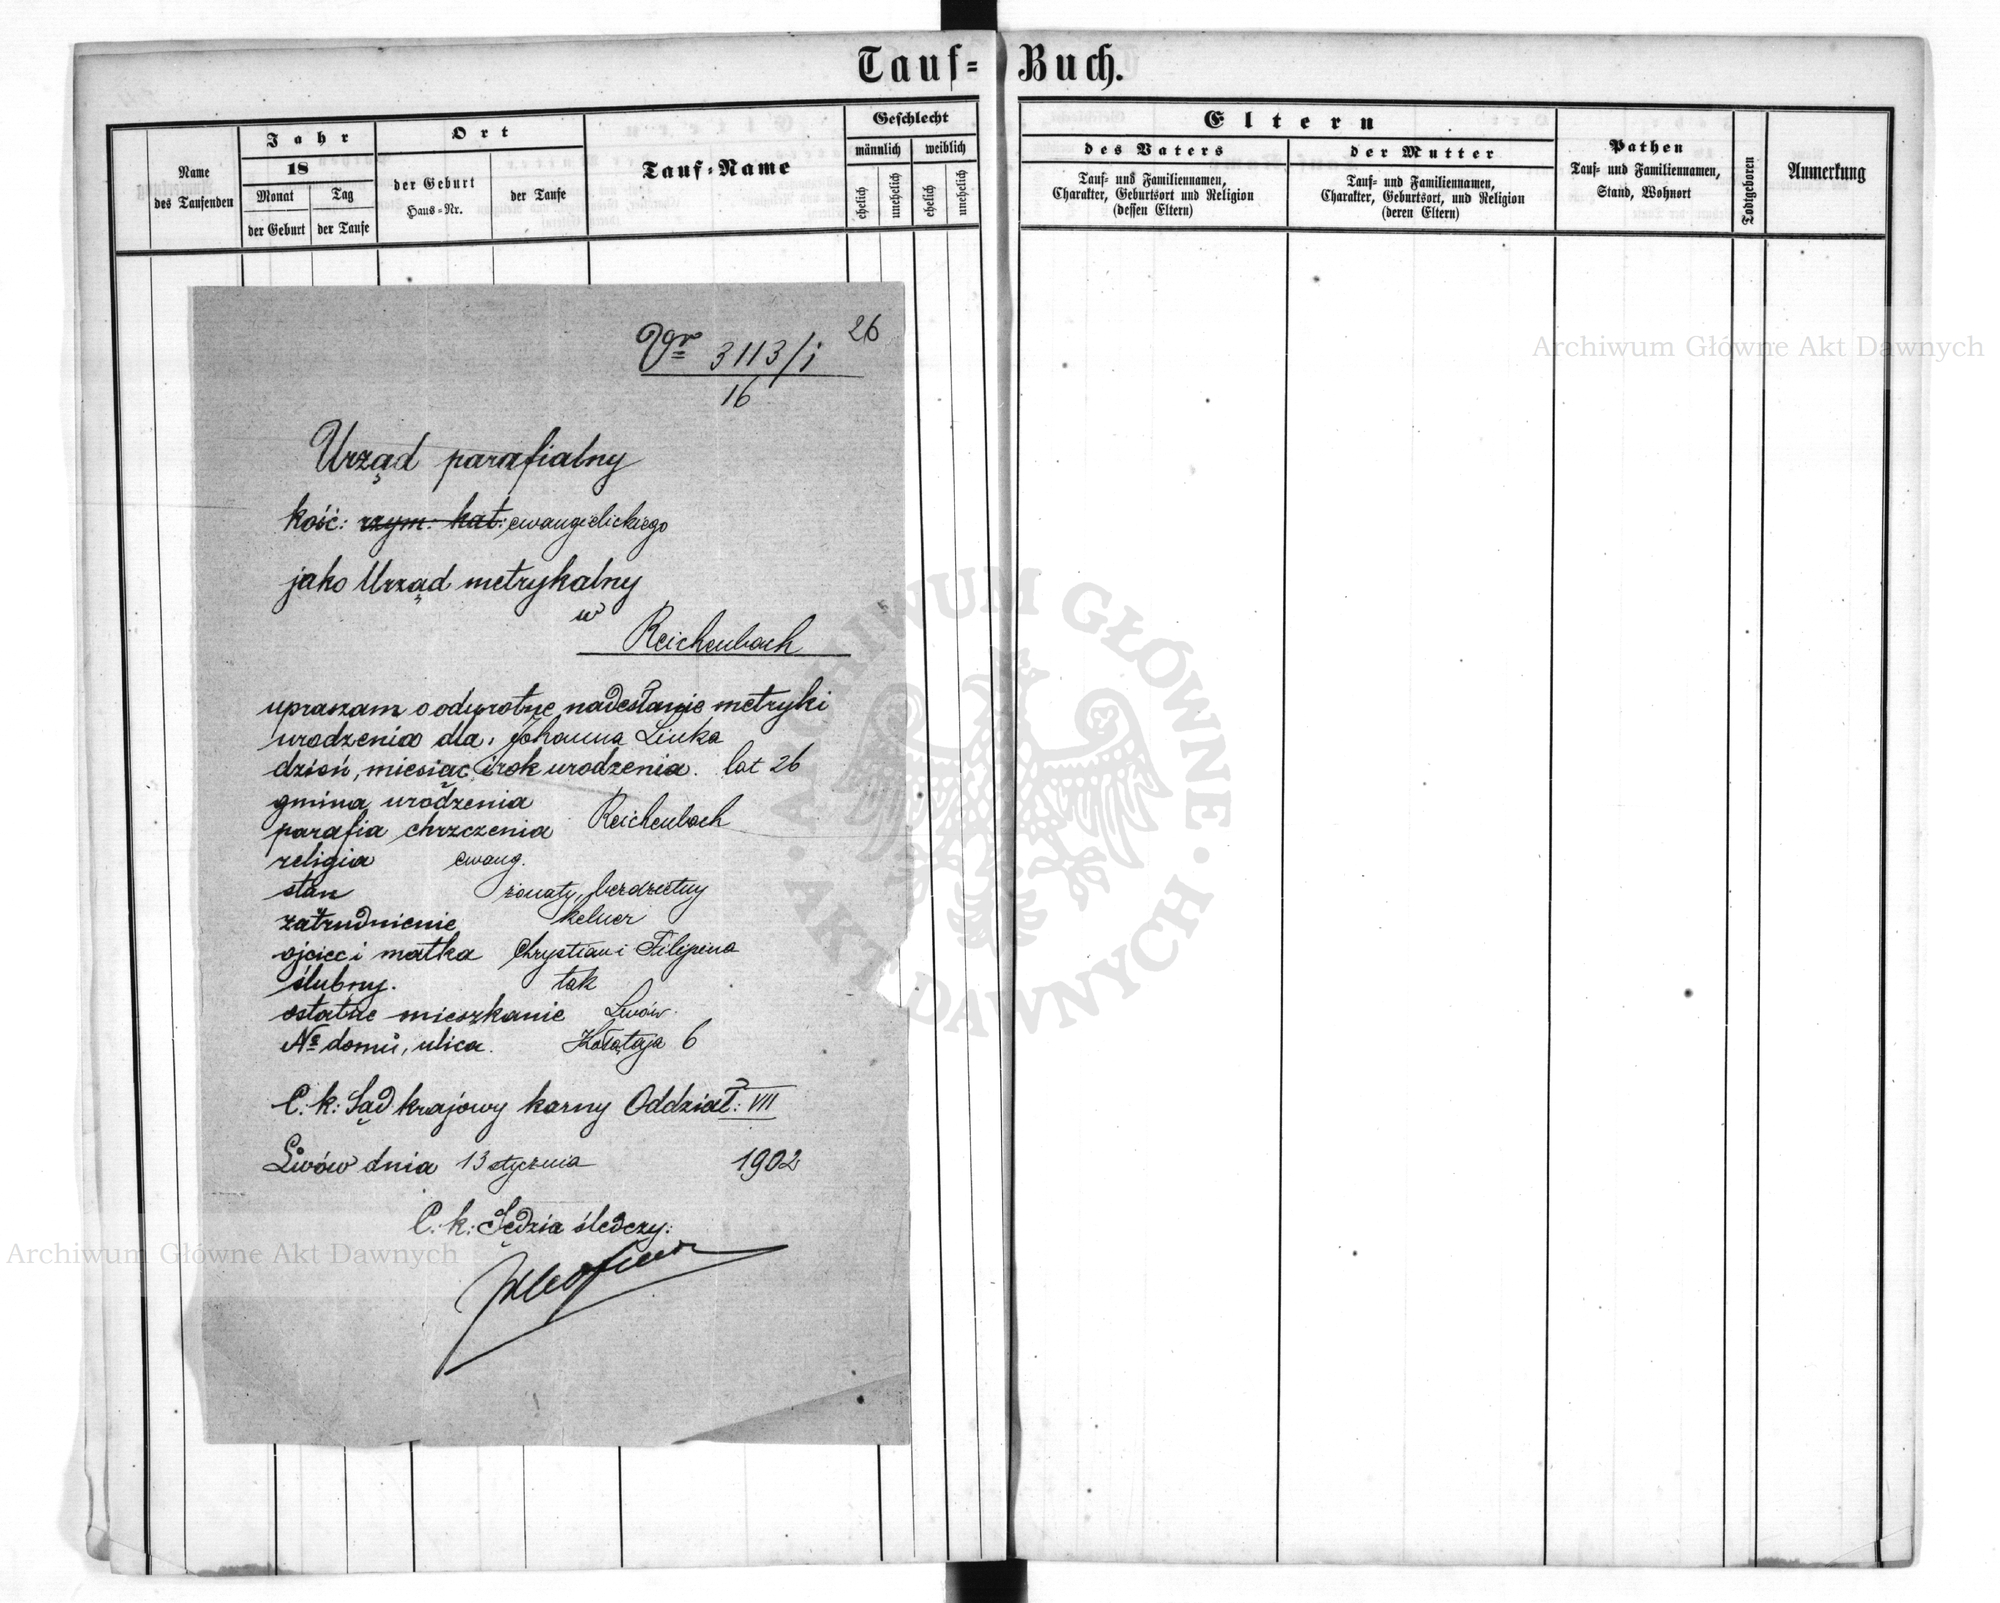 Tauf= Buch.
Name
des Taufenden
Jahr
18
Monat
Tag
der Geburt
der Taufe
Ort
der Geburt
Haus=Nr.
der Taufe
Tauf=Name
Geschlecht
männlich
weiblich
ehelich
unehelich
ehelich
unehelich
Eltern
des Vaters
Tauf= und Familiennamen,
Charakter, Geburtsort und Religion
(dessen Eltern)
der Mutter
Tauf= und Familiennamen,
Charakter, Geburtsort, und Religion
(deren Eltern)
Pathen
Tauf= und Familiennamen,
Stand, Wohnort
Todtgeboren
Anmerkung
26
Vr 3113/1
16
Urząd parafialny
kość: rzym: kat: ewangielickiego
jako Urząd metrykalny
w
Reichenbach
upraszam o odwrotne nadesłanie metryki
urodzenia dla: Johanna Linka
dzień, miesiąc i rok urodzenia. lat 26
gmina urodzenia
parafia chrzczenia Reichenbach
religia ewang.
stan żonaty, bezdzietny
zatrudnienie kelner
ojciec i matka Chrystian i Filipina
ślubny. tak
ostatnie mieszkanie Lwów.
№ domu, ulica. Kołątaja 6
C. k: Sąd krajowy karny Oddział: VII
Lwów dnia 13 stycznia 1902
C. k: Sędzia śledczy:
Archiwum Główne Akt Dawnych
Archiwum Główne Akt Dawnych
ARCHIWUM GŁÓWNE
AKT DAWNYCH